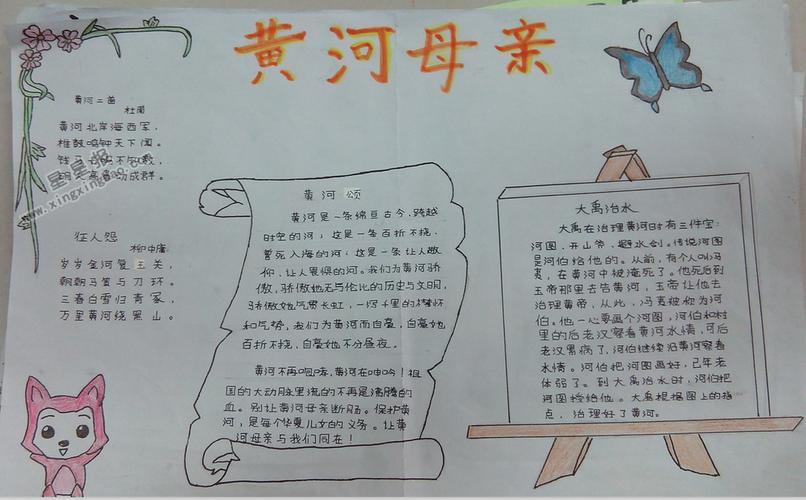 黄河母亲
黄河二首
杜甫
黄河北岸海西军，
椎鼓鸣钟天下闻。
成群。
星星报
www.xingxingbao.com
征人怨
柳中庸
岁岁金河复玉关，
朝朝马策与刀环。
三春白雪归青冢，
万里黄河绕黑山。
黄河颂
黄河是一条绵亘古今，跨越
时空的河；这是一条百折不挠，
誓死入海的河；这是一条让人敬
仰，让人畏惧的河。我们为黄河骄
傲，骄傲她无与伦比的历史与文明，
骄傲她气贯长虹，一泻千里的襟怀
和气势，我们为黄河而自豪，自豪她
百折不挠，自豪她不分昼夜。
黄河不再咆哮，黄河在呻吟！祖
国的大动脉里流的不再是沸腾的
血。别让黄河母亲断肠。保护黄
河，是每个华夏儿女的义务。让黄
河母亲与我们同在！
大禹治水
大禹在治理黄河时有三件宝：
河图，开山斧，避水剑。传说河图
是河伯给他的。从前，有个人叫冯
夷，在黄河中被淹死了。他死后到
玉帝那里去告黄河，玉帝让他去
治理黄帝，从此，冯夷被称为河
伯。他一心要画个河图，河伯和村
里的后老汉察看黄河水情，可后
老汉累病了，河伯继续沿黄河察看
水情。河伯把河图画好，已年老
体弱了。到大禹治水时，河伯把
河图授给他。大禹根据图上的指
点，治理好了黄河。